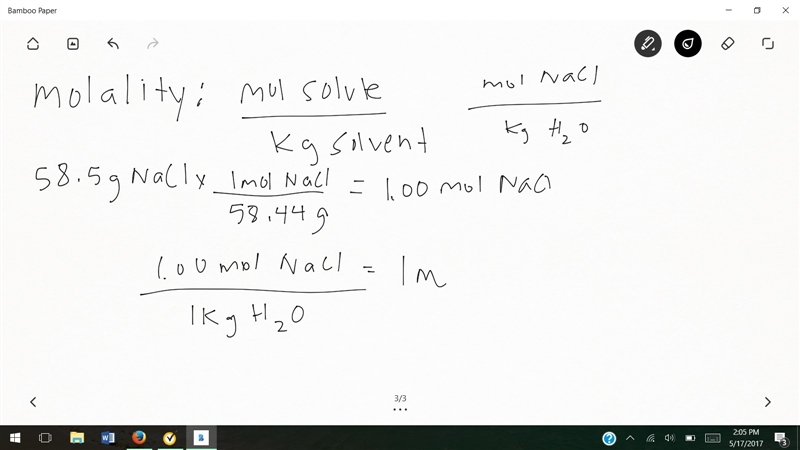 Bamboo Paper
molality: mol solute / Kg solvent
mol NaCl / Kg H₂O
58.5g NaCl x 1mol NaCl / 58.44g = 1.00 mol NaCl
1.00 mol NaCl / 1Kg H₂O = 1m
3/3
2:05 PM
5/17/2017
3